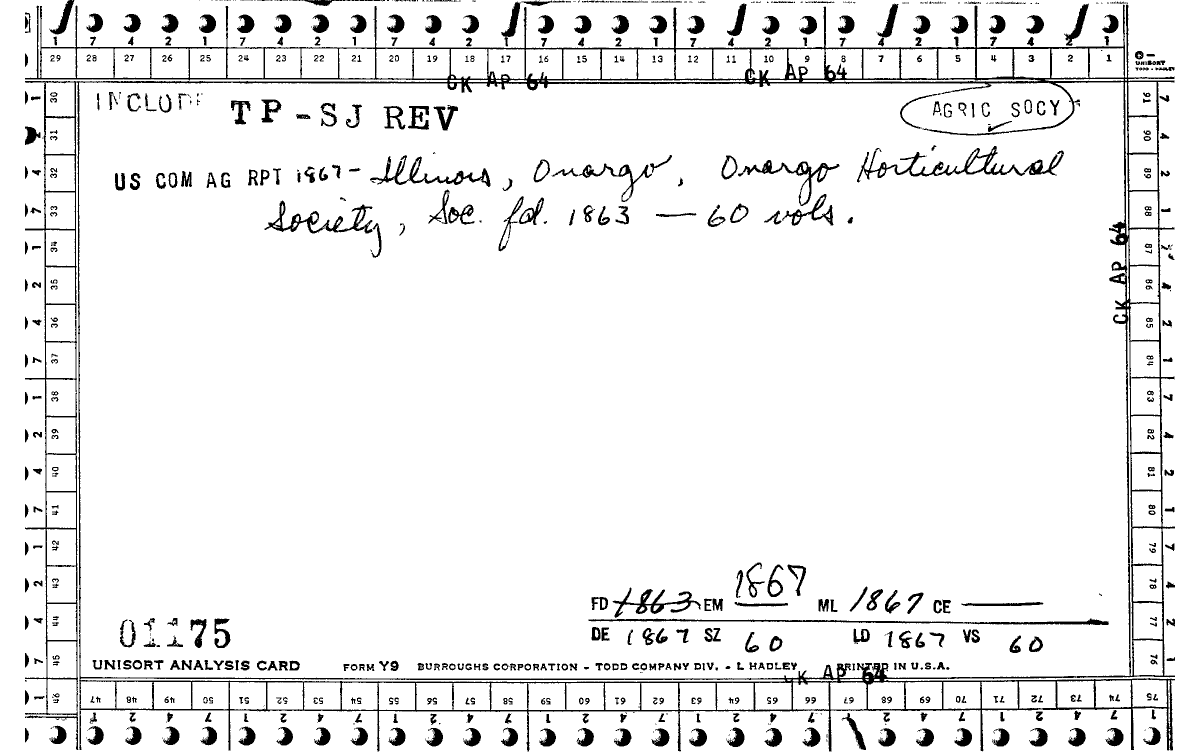 7 4 2 1 7 4 2 1 7 4 2 1 7 4 2 1 7 4 2 1 7 4 2 1 7 4 2 1
29 28 27 26 25 24 23 22 21 20 19 18 17 16 15 14 13 12 11 10 9 8 7 6 5 4 3 2 1
UNISORT
TODD - HADLEY
CK AP 64 CK AP 64
INCLUDE TP-SJ REV AGRIC SOCY
US COM AG RPT 1867- Illinois, Onargo, Onargo Horticultural
Society, Soc. fd. 1863 — 60 vols.
CK AP 64
30 31 32 33 34 35 36 37 38 39 40 41 42 43 44 45 46
91 90 89 88 87 86 85 84 83 82 81 80 79 78 77 76 75
FD 1863 EM 1867 ML 1867 CE —
DE 1867 SZ 60 LD 1867 VS 60
01175
UNISORT ANALYSIS CARD FORM Y9 BURROUGHS CORPORATION - TODD COMPANY DIV. - L HADLEY PRINTED IN U.S.A.
CK AP 64
47 48 49 50 51 52 53 54 55 56 57 58 59 60 61 62 63 64 65 66 67 68 69 70 71 72 73 74